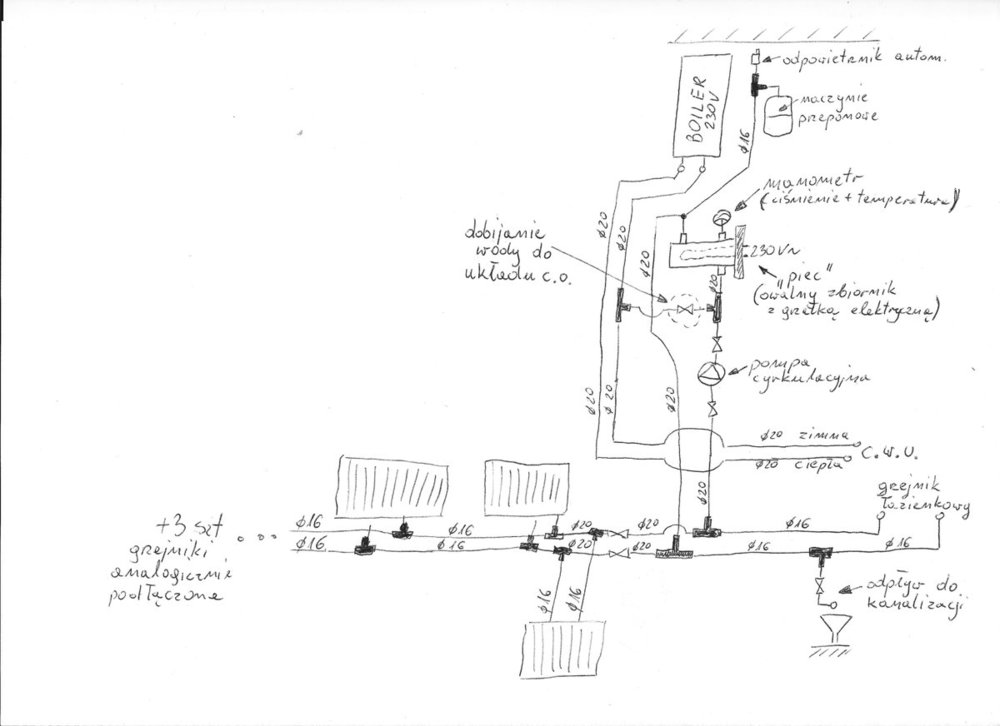 odpowietrznik autom.
naczynie
przeponowe
BOILER
230V
φ16
manometr
(ciśnienie + temperatura)
dobijanie
wody do
układu c.o.
φ20
φ20
φ20
230V~
φ20
"piec"
(owalny zbiornik
z grzałką elektryczną)
pompa
cyrkulacyjna
φ20
φ20
φ20
φ20 zimna
φ20 ciepła
C.W.U.
φ20
grzejnik
łazienkowy
+3 szt
grzejniki
analogicznie
podłączone
φ16
φ16
φ20
φ20
φ16
φ16
φ16
φ20
φ20
φ16
φ16
φ16
φ16
odpływ do
kanalizacji